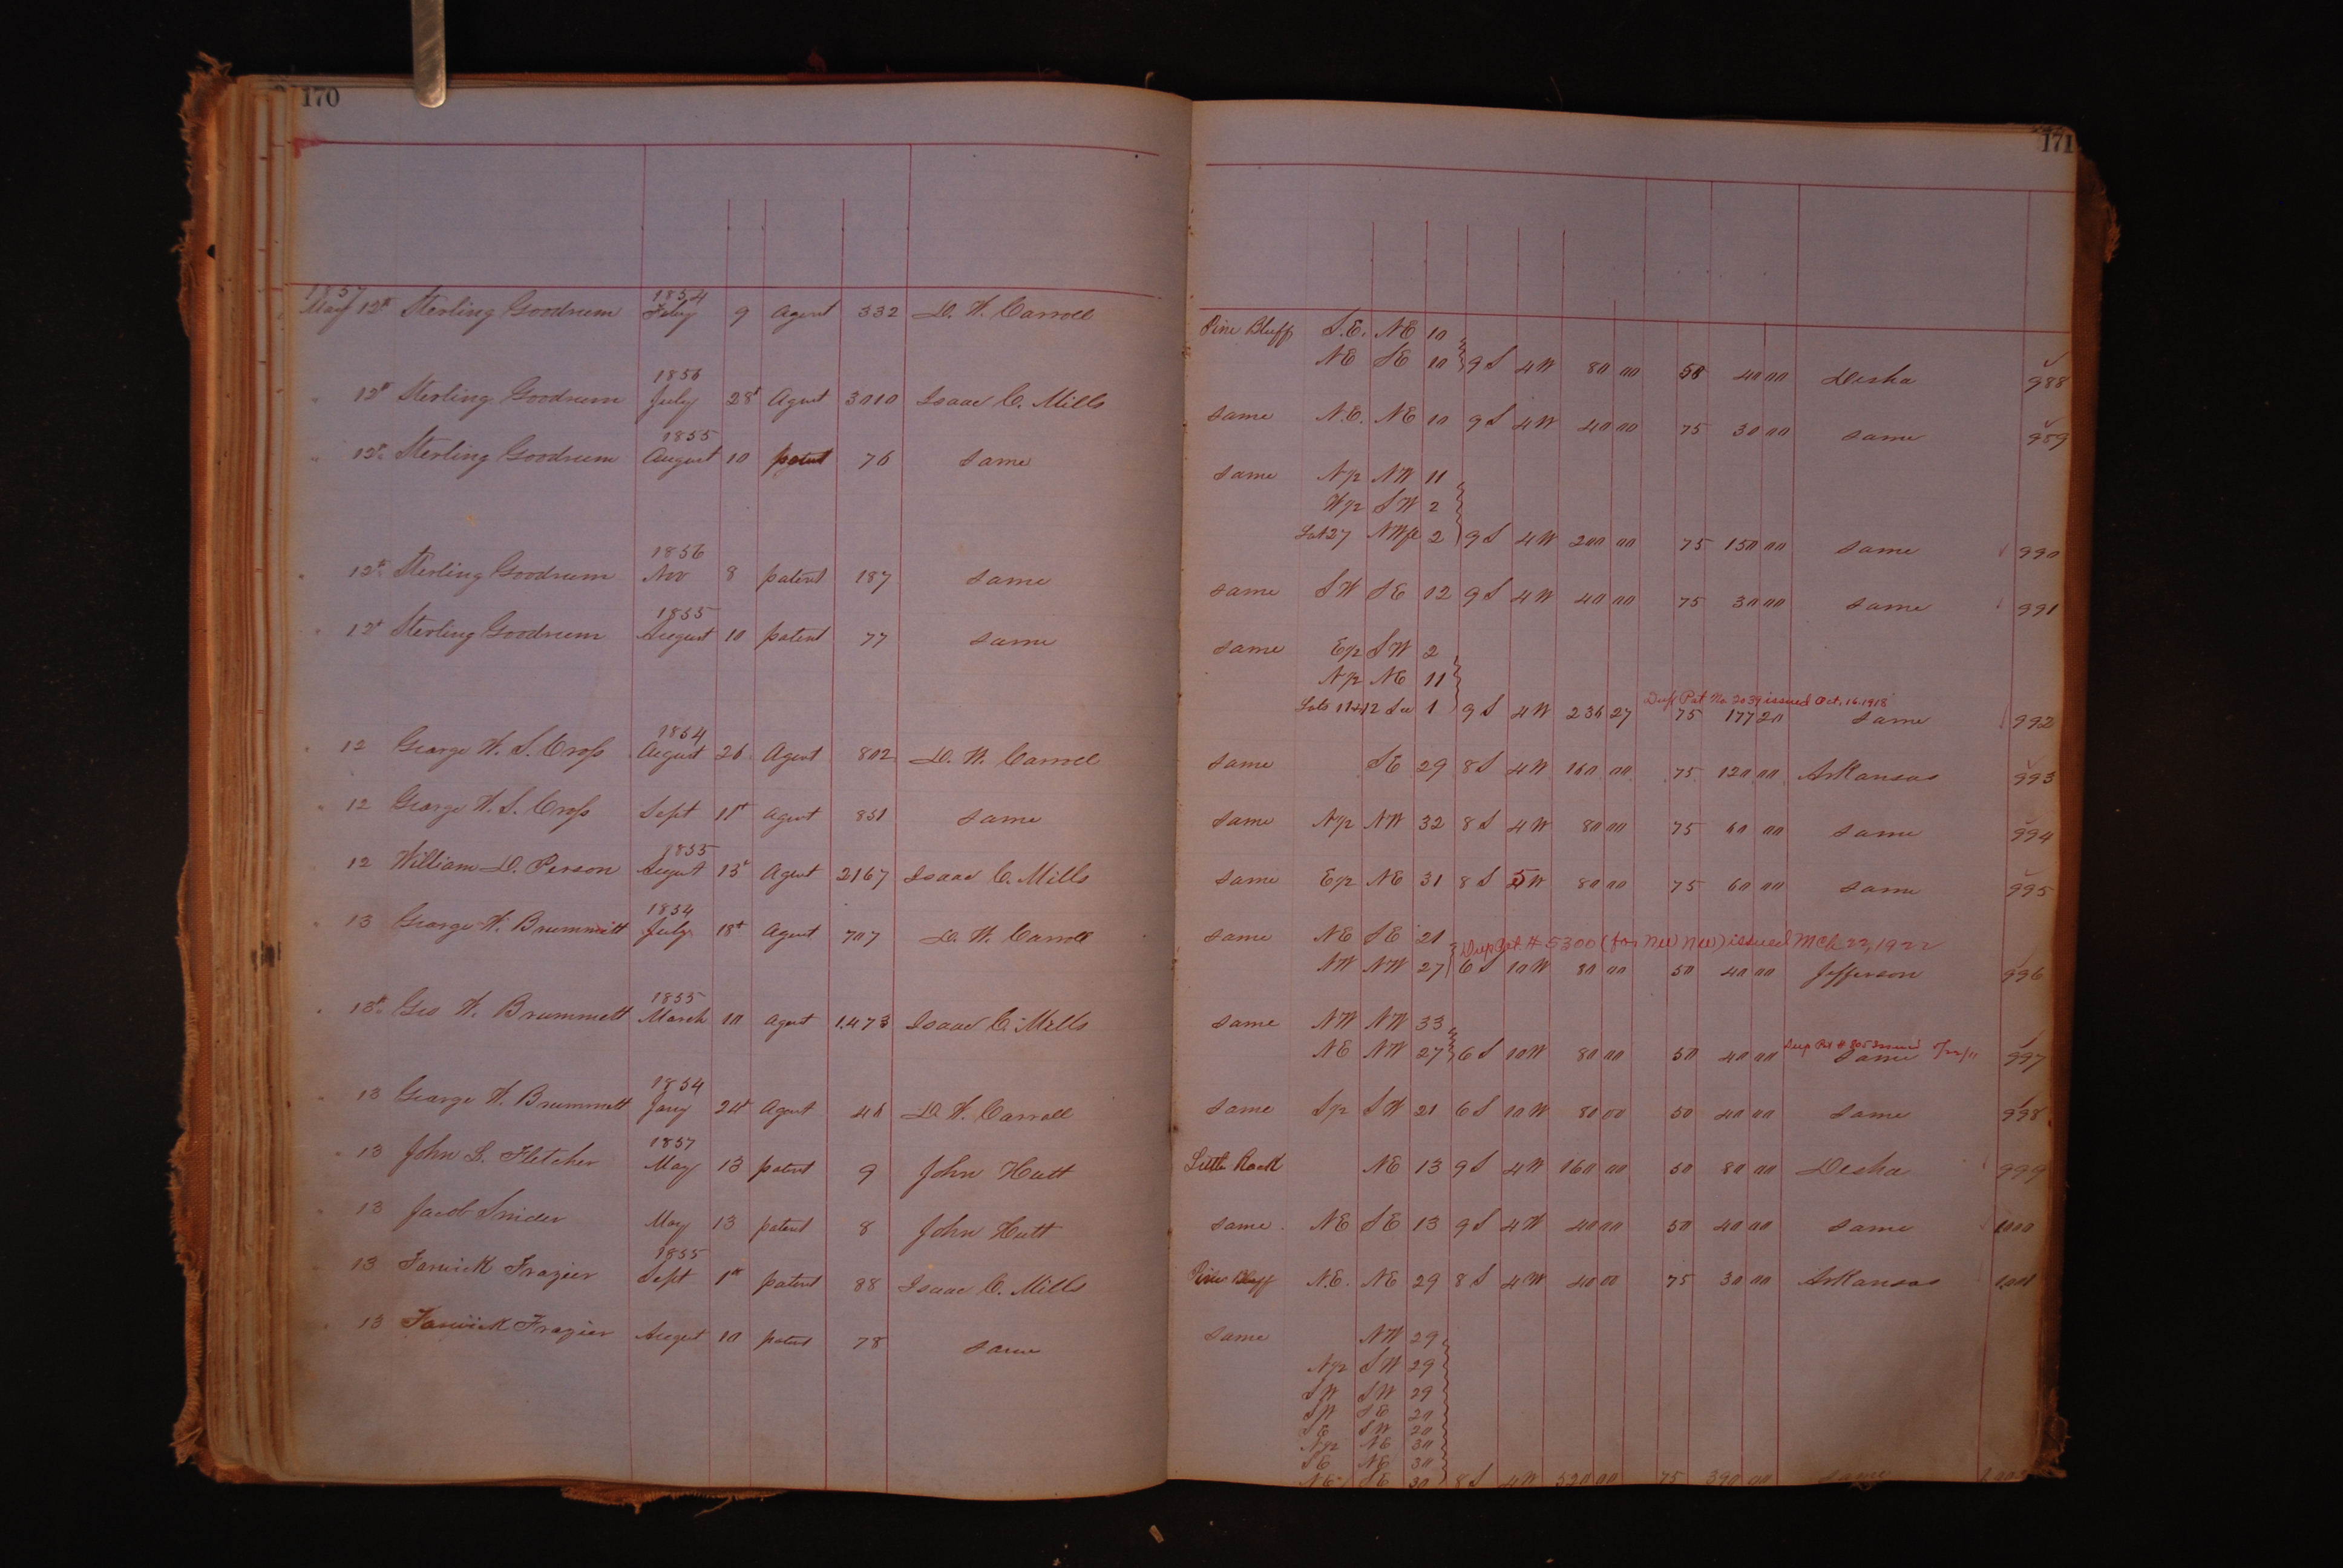 170
1857 1854
May 12th Sterling Goodrum Feby 9 Agent 332 D. W. Carroll
1856
" 12th Sterling Goodrum July 28t Agent 3010 Isaac C. Mills
1855
" 12th Sterling Goodrum August 10 patent 76 same
1856
" 12th Sterling Goodrum Nov 8 patent 187 same
1855
" 12t Sterling Goodrum August 10 patent 77 same
1854
" 12 George W. S. Cross August 26 Agent 802 D. W. Carroll
" 12 George W. S. Cross Sept 11t Agent 851 same
1855
12 William D. Person August 13t Agent 2167 Isaac C. Mills
1854
" 13 George W. Brummitt July 18t Agent 707 D. W. Carroll
1855
" 13th Geo W. Brummett March 10 Agent 1,473 Isaac C. Mills
1854
" 13 George W. Brummett Jany 24t Agent 46 D. W. Carroll
1857
" 13 John L. Fletcher May 13 patent 9 John Hutt
" 13 Jacob Snider May 13 patent 8 John Hutt
1855
" 13 Fanrick Frazier Sept 1st patent 88 Isaac C. Mills
" 13 Fanrick Frazier August 10 patent 78 same
171
Pine Bluff S.E. NE 10
NE SE 10 9S 4W 80 00 50 40 00 Desha 988
same N.E. NE 10 9S 4W 40 00 75 30 00 same 989
same N/2 NW 11
W/2 SW 2
Lot 27 NWfr 2 9S 4W 200 00 75 150 00 same 990
same SW SE 12 9S 4W 40 00 75 30 00 same 991
same E/2 SW 2
N/2 NE 11
Dup Pat No 2039 issued Oct. 16. 1918
Lots 11&12 Sec 1 9S 4W 236 27 75 177 20 same 992
same SE 29 8S 4W 160 00 75 120 00 Arkansas 993
same N/2 NW 32 8S 4W 80 00 75 60 00 same 994
same E/2 NE 31 8S 5W 80 00 75 60 00 same 995
same NE SE 21
Dup Pat. # 5300 (for NW NW) issued Mch 22, 1922
NW NW 27 6S 10W 80 00 50 40 00 Jefferson 996
same NW NW 33
Dup Pat # 805 issued
NE NW 27 6S 10W 80 00 50 40 00 same 997
same S/2 SW 21 6S 10W 80 00 50 40 00 same 998
Little Rock NE 13 9S 4W 160 00 50 80 00 Desha 999
same NE SE 13 9S 4W 40 00 50 40 00 same 1000
Pine Bluff N.E. NE 29 8S 4W 40 00 75 30 00 Arkansas 1,001
same NW 29
N/2 SW 29
SW SW 29
SW SE 20
SE SW 20
N/2 NE 30
SE NE 30
NE SE 30 8S 4W 520 00 75 390 00 same